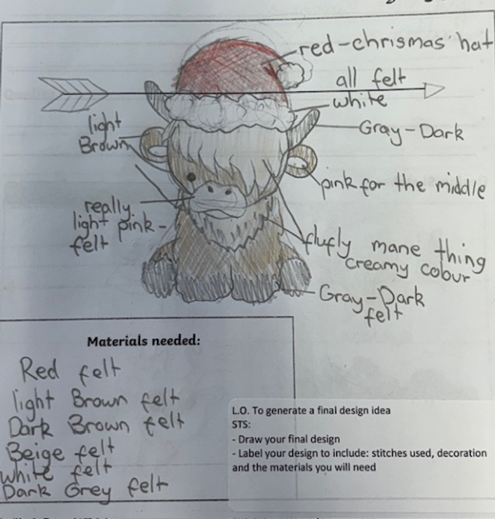 red-chrismas hat
all felt
white
light
Brown
Gray-Dark
pink for the middle
really
light pink-
felt
flufly mane thing
creamy colour
Gray-Dark
felt
Materials needed:
Red felt
light Brown felt
Dark Brown felt
Beige felt
white felt
Dark Grey felt
L.O. To generate a final design idea
STS:
- Draw your final design
- Label your design to include: stitches used, decoration
and the materials you will need